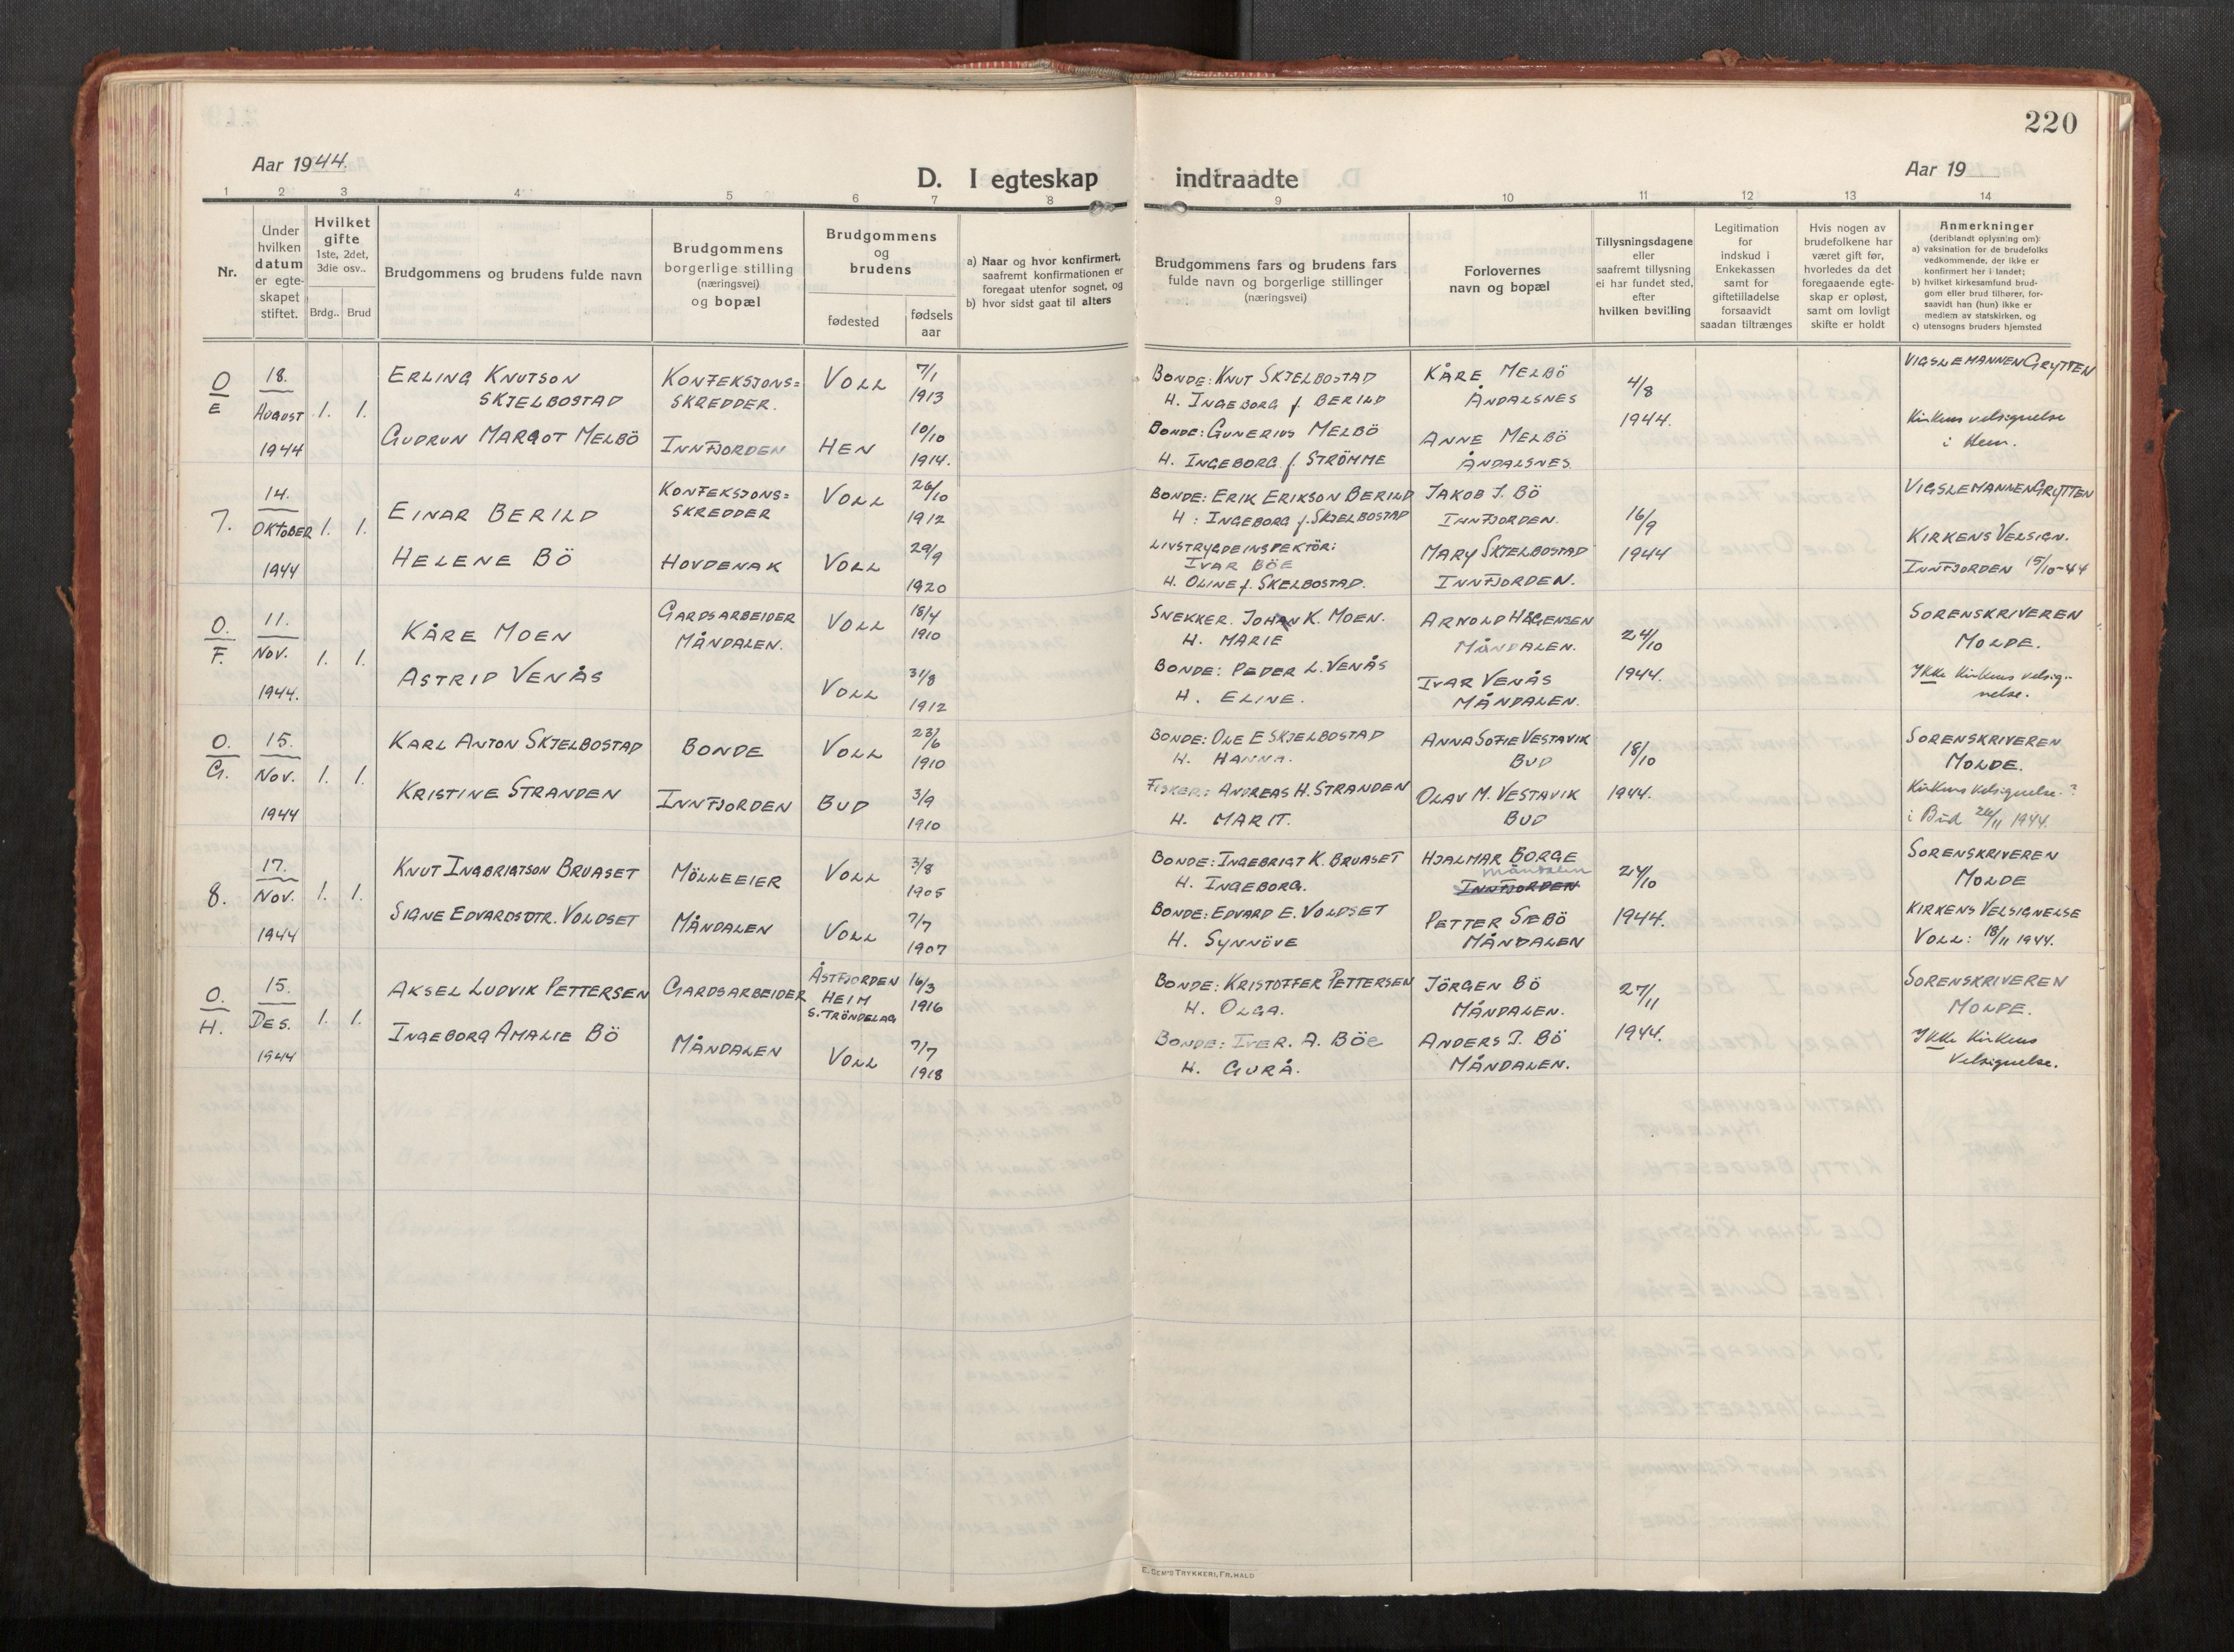 220
Aar 1944.
D. I egteskap indtraadte
Aar 19
1 2 3 4 5 6 7 8 9 10 11 12 13 14
Nr.
Under
hvilken
datum
er egte-
skapet
stiftet.
Hvilket
gifte
1ste, 2det,
3die osv..
Brdg.. Brud
Brudgommens og brudens fulde navn
Brudgommens
borgerlige stilling
(næringsvei)
og bopæl
Brudgommens
og
brudens
fødested
fødsels
aar
a) Naar og hvor konfirmert,
saafremt konfirmationen er
foregaat utenfor sognet, og
b) hvor sidst gaat til alters
Brudgommens fars og brudens fars
fulde navn og borgerlige stillinger
(næringsvei)
Forlovernes
navn og bopæl
Tillysningsdagene
eller
saafremt tillysning
ei har fundet sted,
efter
hvilken bevilling
Legitimation
for
indskud i
Enkekassen
samt for
giftetilladelse
forsaavidt
saadan tiltrænges
Hvis nogen av
brudefolkene har
været gift før,
hvorledes da det
foregaaende egte-
skap er opløst,
samt om lovligt
skifte er holdt
Anmerkninger
(deriblandt oplysning om):
a) vaksination for de brudefolks
vedkommende, der ikke er
konfirmert her i landet;
b) hvilket kirkesamfund brud-
gom eller brud tilhører, for-
saavidt han (hun) ikke er
medlem av statskirken, og
c) utensogns bruders hjemsted
O
E
18.
August
1944
1. 1.
Erling Knutson
Skjelbostad
Gudrun Margot Melbö
Konfeksjons=
skredder.
Innfjorden
Voll
Hen
7/1
1913
10/10
1914.
Bonde: Knut Skjelbostad
H. Ingeborg f. Berild
Bonde: Gunerius Melbö
H. Ingeborg f. Strömme
Kåre Melbö
Åndalsnes
Anne Melbö
Åndalsnes
4/8
1944.
Vigslemannen Grytten
Kirkens velsignelse
i Hen.
7.
14.
Oktober
1944
1. 1.
Einar Berild
Helene Bö
Konfeksjons=
skredder
Hovdenak
Voll
Voll
26/10
1912
29/9
1920
Bonde: Erik Erikson Berild
H: Ingeborg f. Skjelbostad
Livstrygdeinspektör:
Ivar Böe
H. Oline f. Skelbostad.
Jakob J. Bö
Innfjorden.
Mary Skjelbostad
Innfjorden.
16/9
1944
Vigslemannen Grytten
Kirkens Velsign.
Innfjorden 15/10-44
O.
F.
11.
Nov.
1944.
1. 1.
Kåre Moen
Astrid Venås
Gardsarbeider
Måndalen.
Voll
Voll
18/4
1910
31/8
1912
Snekker. Johan K. Moen.
H. Marie
Bonde: Peder L. Venås
H. Eline.
Arnold Hågensen
Måndalen.
Ivar Venås
Måndalen.
24/10
1944.
Sorenskriveren
Molde.
Ikke kirkens velsig-
nelse.
O.
G.
15.
Nov.
1944
1. 1.
Karl Anton Skjelbostad
Kristine Stranden
Bonde
Innfjorden
Voll
Bud
23/6
1910
3/9
1910
Bonde: Ole E Skjelbostad
H. Hanna.
Fisker: Andreas H. Stranden
H. Marit.
Anna Sofie Vestavik
Bud
Olav M. Vestavik
Bud
18/10
1944.
Sorenskriveren
Molde.
Kirkens velsignelse.?
i Bud 26/11 1944.
8.
17.
Nov.
1944
1. 1.
Knut Ingbrigtson Bruaset
Signe Edvardsdtr. Voldset
Mölleeier
Måndalen
Voll
Voll
3/8
1905
7/7
1907
Bonde: Ingebrigt K. Bruaset
H. Ingeborg.
Bonde: Edvard E. Voldset
H. Synnöve
Hjalmar Borge
Måndalen
Innfjorden
Petter Sæbö
Måndalen
24/10
1944.
Sorenskriveren
Molde
Kirkens Velsignelse
Voll: 18/11 1944.
O.
H.
15.
Des.
1944
1. 1.
Aksel Ludvik Pettersen
Ingeborg Amalie Bö
Gardsarbeider
Måndalen
Åstfjorden
Heim
S. Tröndelag
Voll
16/3
1916
7/7
1918
Bonde: Kristoffer Pettersen
H. Olga.
Bonde: Iver. A. Böe
H. Gurå.
Jörgen Bö
Måndalen.
Anders J. Bö
Måndalen.
27/11
1944.
Sorenskriveren
Molde.
Ikke Kirkens
Velsignelse.
E. Sem's Trykkeri, Fr.hald